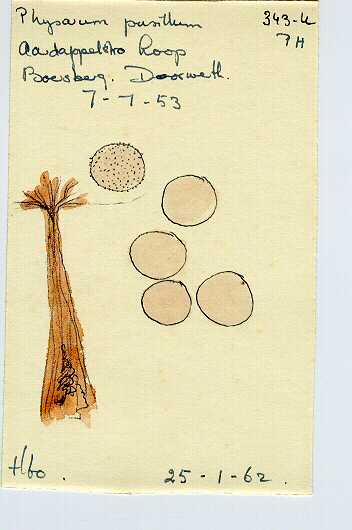 Physarum pusillum 343-k
Aardappelstro hoop 7H
Boersberg. Doorwerth.
7-7-53
Hbo.
25-1-62.